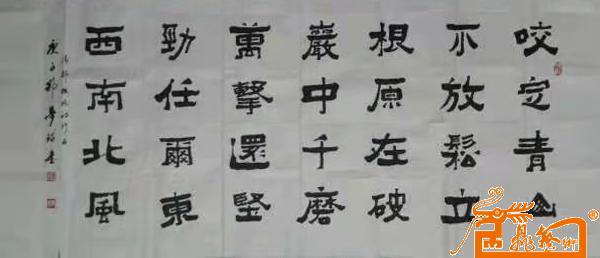 咬定青山
不放鬆立
根原在破
巖中千磨
萬擊還堅
勁任爾東
西南北風
庚子